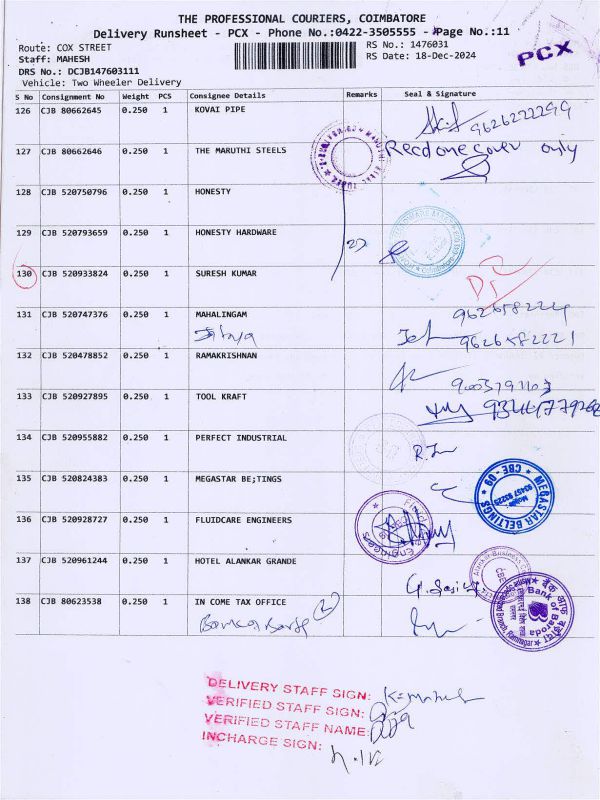 THE PROFESSIONAL COURIERS, COIMBATORE
Delivery Runsheet - PCX - Phone No.:0422-3505555 - Page No.:11
Route: COX STREET RS No.: 1476031
Staff: MAHESH RS Date: 18-Dec-2024
DRS No.: DCJB147603111
Vehicle: Two Wheeler Delivery
PCX
S No Consignment No Weight PCS Consignee Details Remarks Seal & Signature
126 CJB 80662645 0.250 1 KOVAI PIPE
9626222299
127 CJB 80662646 0.250 1 THE MARUTHI STEELS Recd one cover only
128 CJB 520750796 0.250 1 HONESTY
129 CJB 520793659 0.250 1 HONESTY HARDWARE
130 CJB 520933824 0.250 1 SURESH KUMAR
131 CJB 520747376 0.250 1 MAHALINGAM
132 CJB 520478852 0.250 1 RAMAKRISHNAN
133 CJB 520927895 0.250 1 TOOL KRAFT
134 CJB 520955882 0.250 1 PERFECT INDUSTRIAL
135 CJB 520824383 0.250 1 MEGASTAR BE;TINGS
MEGASTAR BELTINGS
CBE - 09
136 CJB 520928727 0.250 1 FLUIDCARE ENGINEERS
137 CJB 520961244 0.250 1 HOTEL ALANKAR GRANDE
138 CJB 80623538 0.250 1 IN COME TAX OFFICE
Bank of Baroda
बैंक ऑफ़ बड़ौदा
DELIVERY STAFF SIGN:
VERIFIED STAFF SIGN:
VERIFIED STAFF NAME:
INCHARGE SIGN: